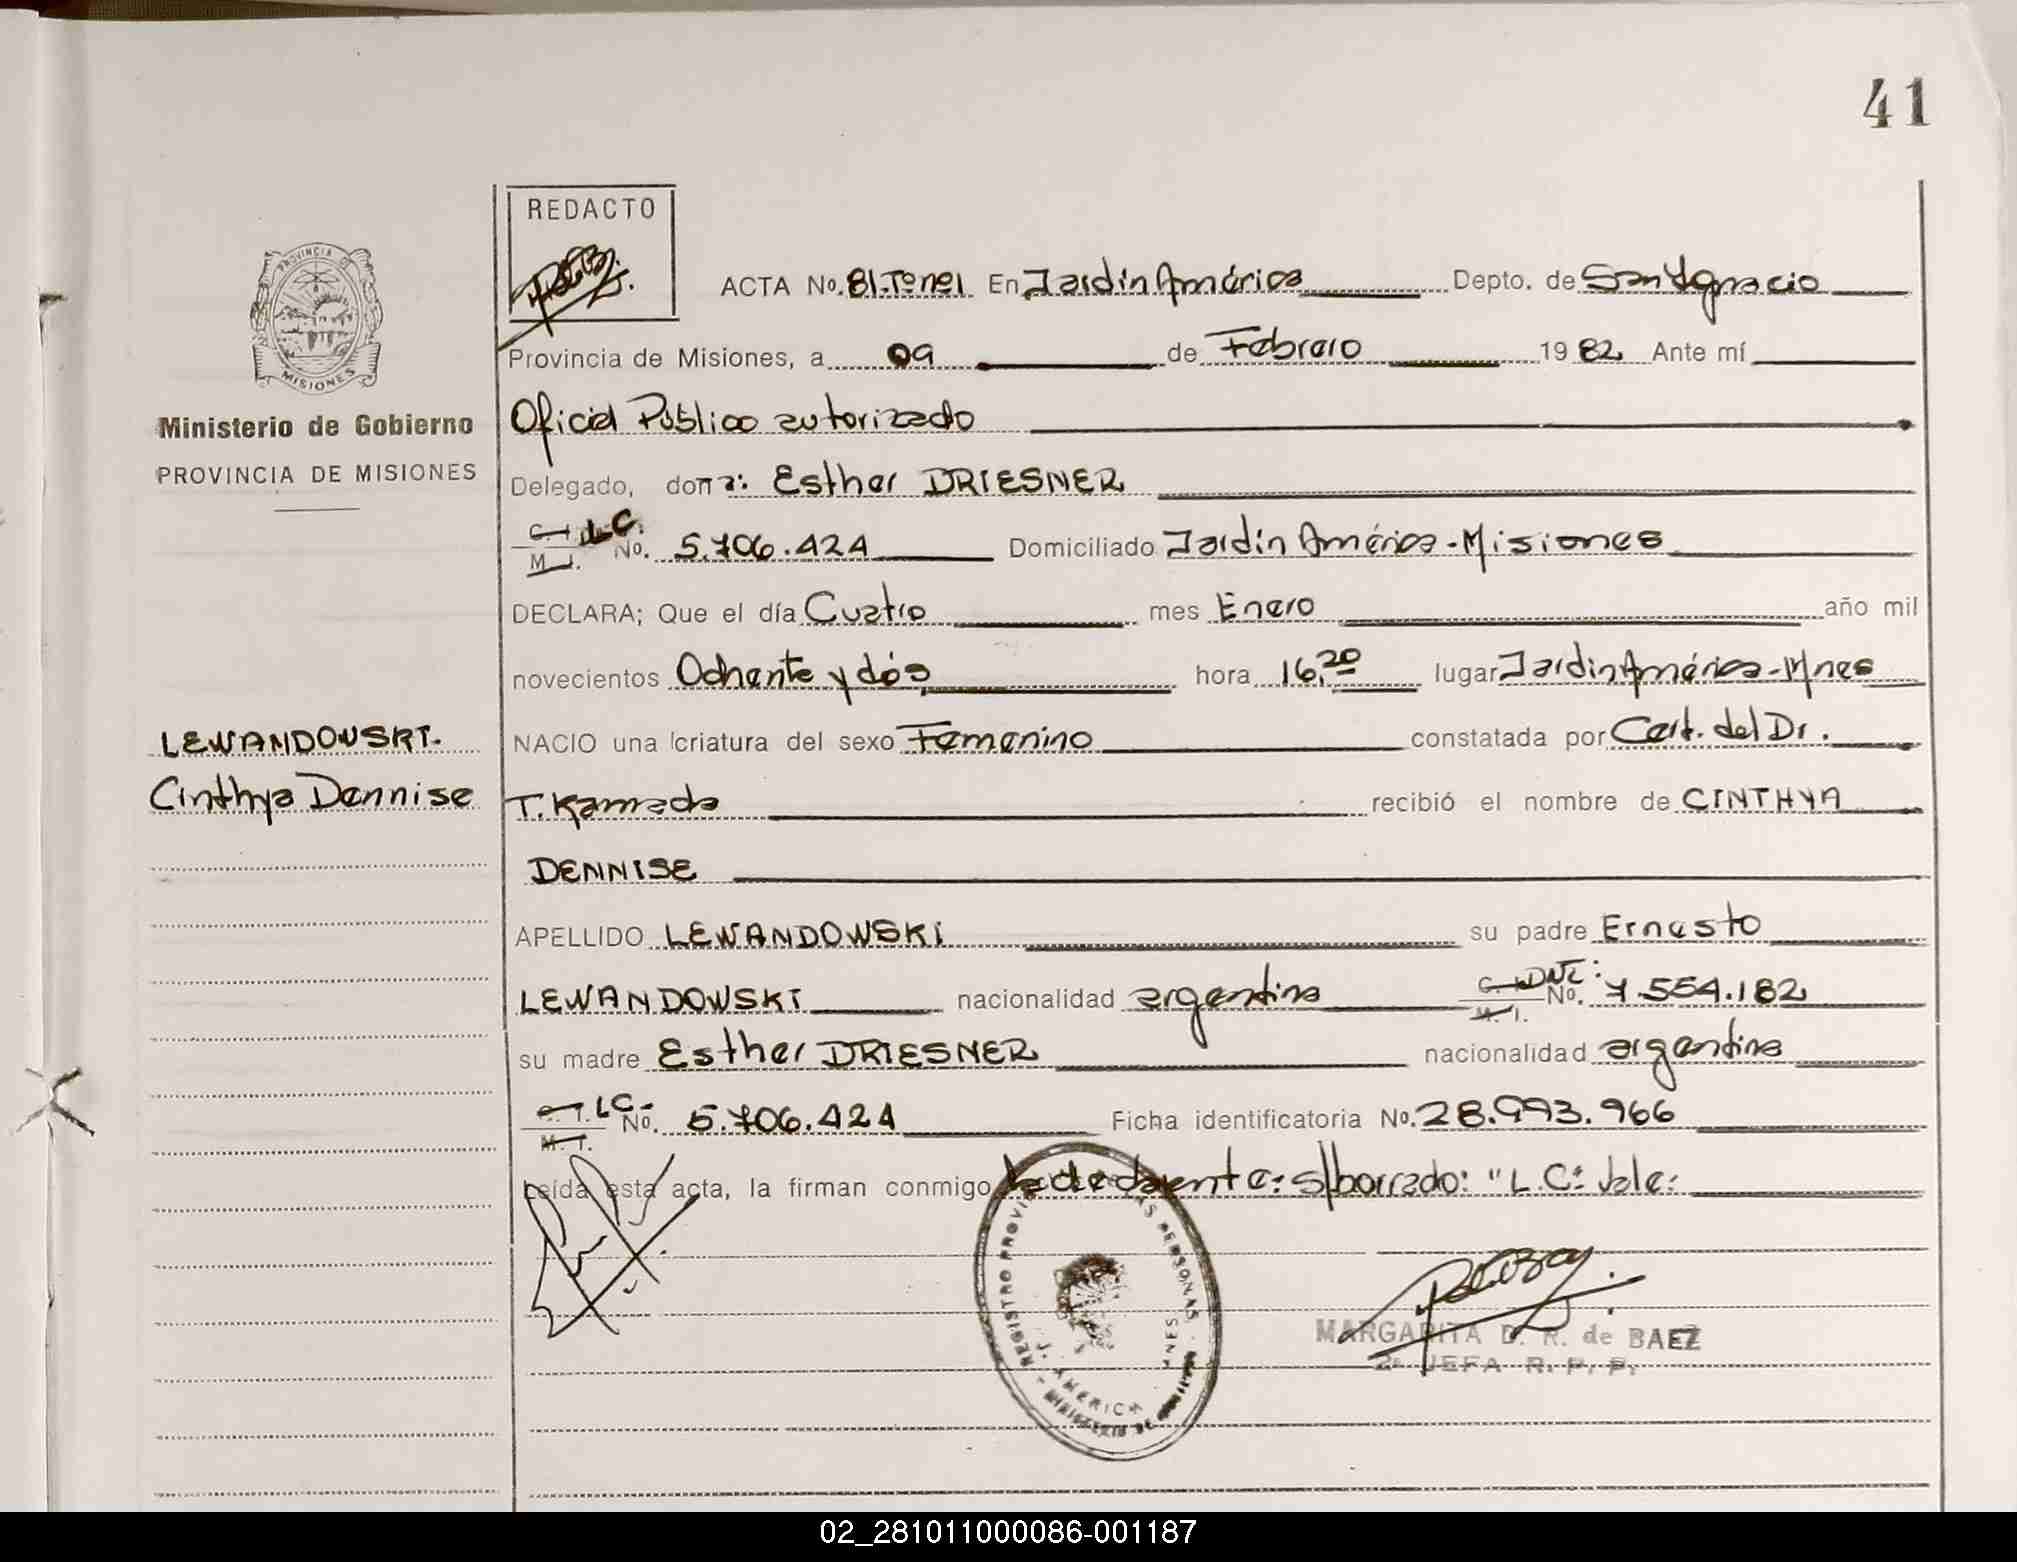 41
REDACTO
PROVINCIA DE
MISIONES
Ministerio de Gobierno
PROVINCIA DE MISIONES
ACTA No. 81.Tº nº1 En Jardín América Depto. de San Ignacio
Provincia de Misiones, a 09 de Febrero 1982 Ante mí
Oficial Público autorizado
Delegado, don a: Esther DRIESNER
C. I. L.C.
M. I. No. 5.706.424 Domiciliado Jardín América - Misiones
DECLARA; Que el día Cuatro mes Enero año mil
novecientos Ochenta y dós hora 16,20 lugar Jardín América - Mnes
NACIO una criatura del sexo Femenino constatada por Cert. del Dr.
T. Kameda recibió el nombre de CINTHYA
DENNISE
LEWANDOWSKI.
Cinthya Dennise
APELLIDO LEWANDOWSKI su padre Ernesto
LEWANDOWSKI nacionalidad argentina C. I. DNI: M. I. No. 7.554.182
su madre Esther DRIESNER nacionalidad argentina
C. I. LC. M. I. No. 5.706.424 Ficha identificatoria No. 28.993.966
Leída esta acta, la firman conmigo s/borrado: "L.C: Vale:
REGISTRO PERSONAS
AMERICA MNES
MINISTERIO DE
MARGARITA D. R. de BAEZ
2ª JEFA R. P. P.
02_281011000086-001187